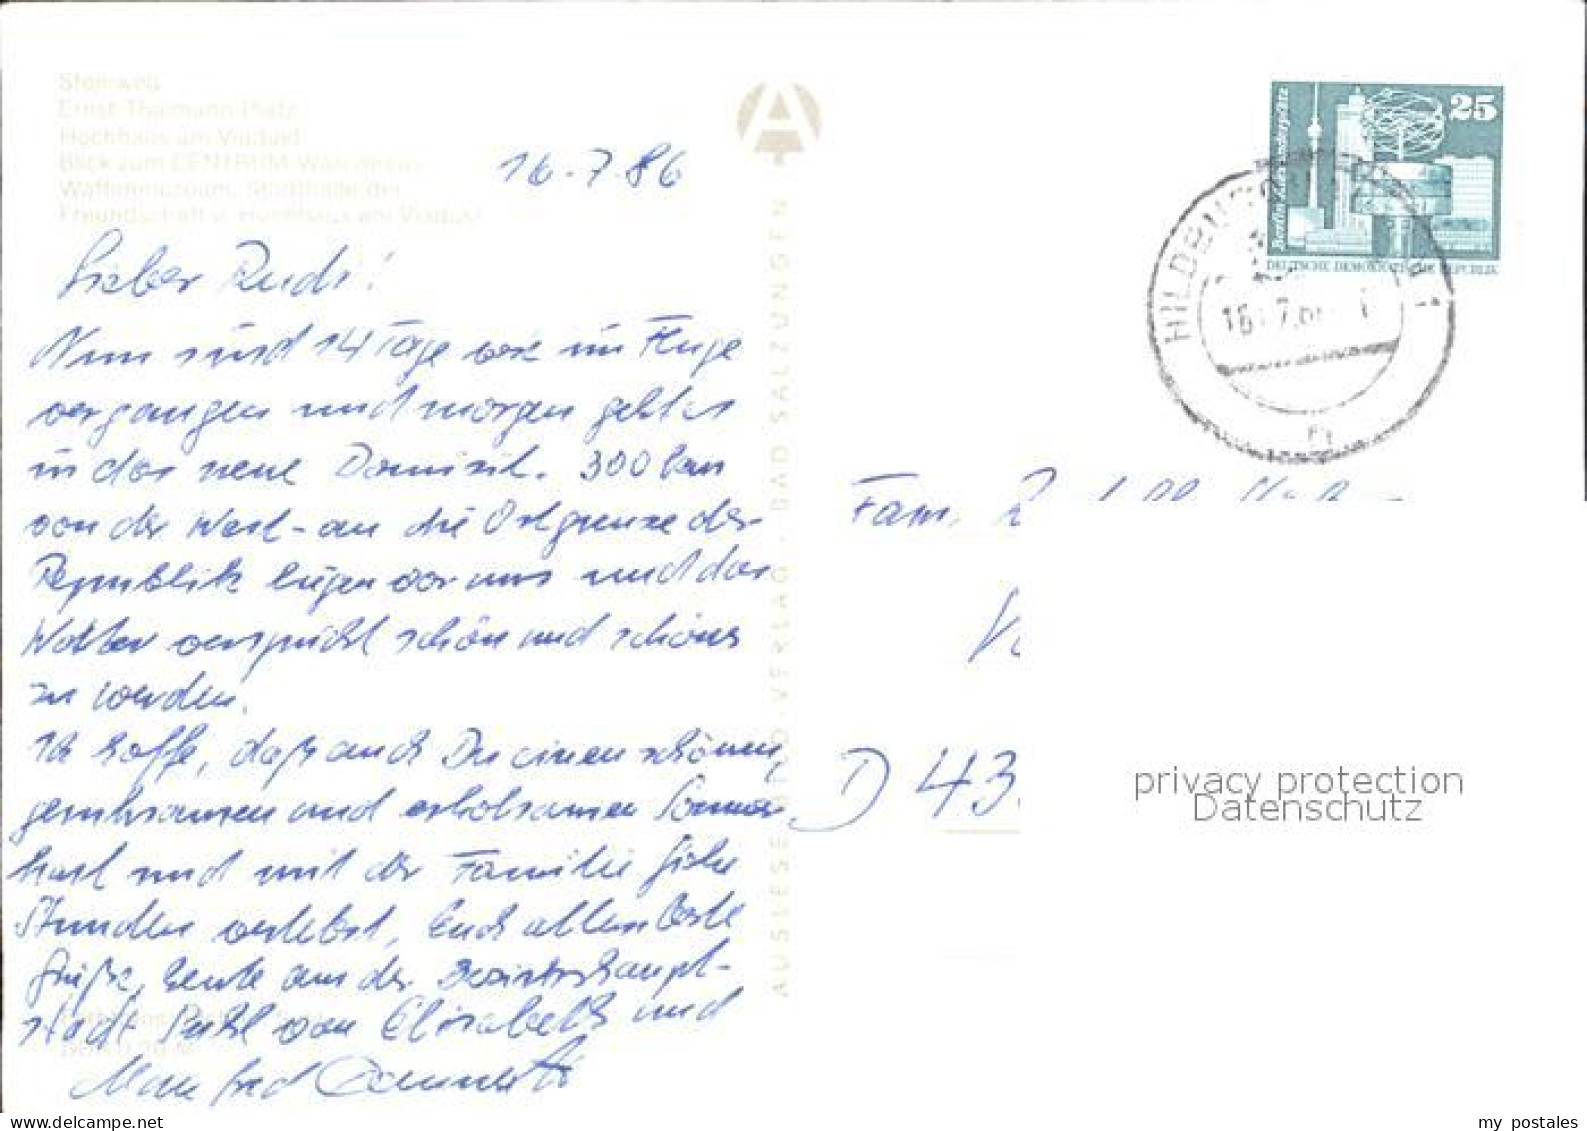 Steinweg
Ernst-Thälmann-Platz
Hochhaus am Viadukt
Blick zum CENTRUM-Warenhaus
Waffenmuseum, Stadthalle der
Freundschaft u. Hochhaus am Viadukt
16.7.86
Lieber Rudi!
Nun sind 14 Tage wie im Fluge
vergangen und morgen geht es
in das neue Domizil. 300 km
von der West- an die Ostgrenze der
Republik liegen vor uns und das
Wetter verspricht schön und schöner
zu werden.
Ich hoffe, daß auch Du einen schönen,
gemeinsamen und erholsamen Sommer
hast und mit der Familie frohe
Stunden verlebst, Euch allen beste
Grüße, heute aus der Bezirkshaupt-
stadt Suhl von Elisabeth und
Manfred
AUSLESE-BILD-VERLAG · BAD SALZUNGEN
A
25
Berlin, Alexanderplatz
DEUTSCHE DEMOKRATISCHE REPUBLIK
HILDBURG
16.7.86
Fam.
D 43
privacy protection
Datenschutz
www.delcampe.net
my_postales